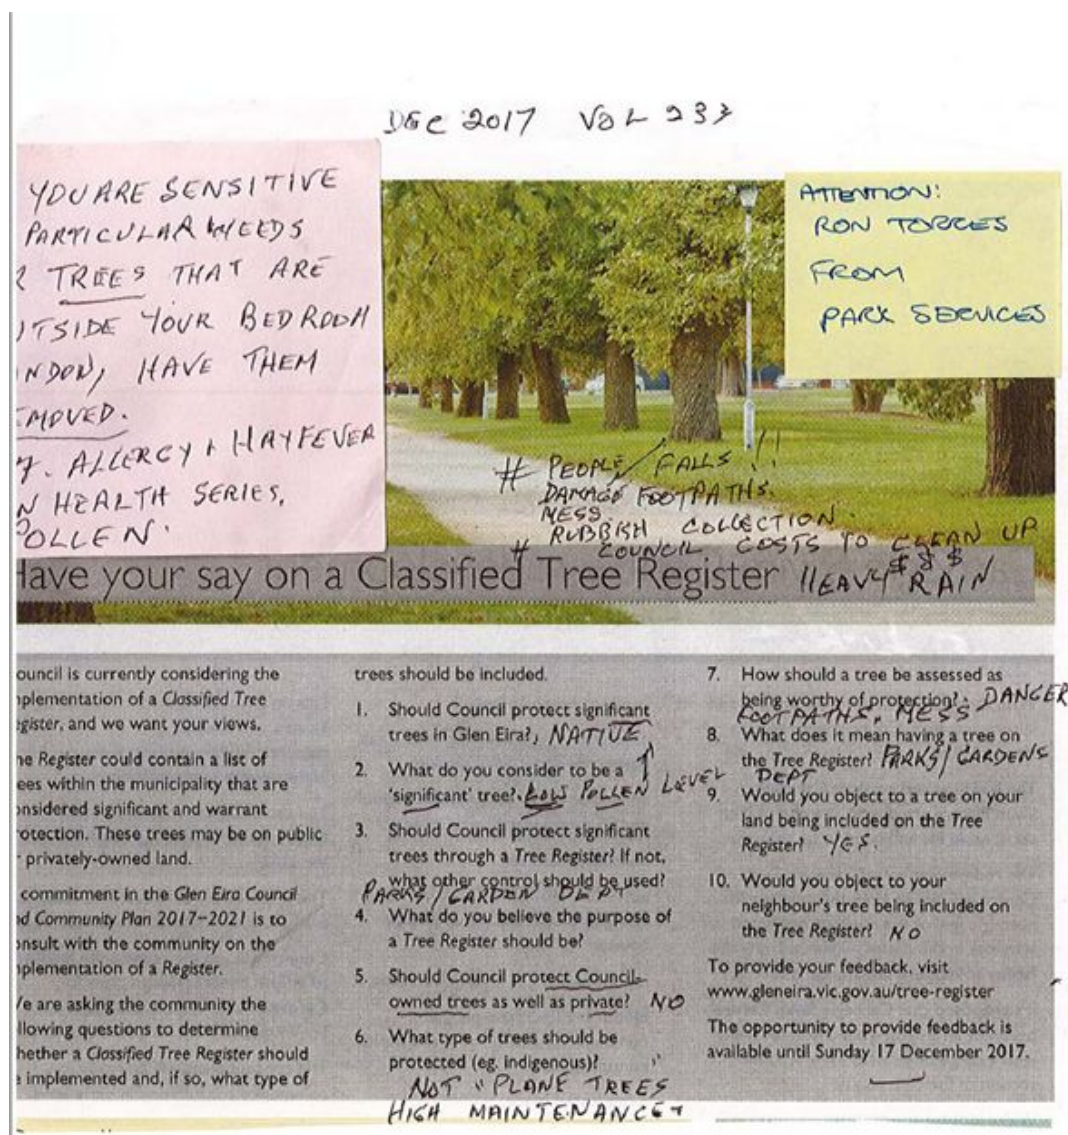 DEC 2017 VOL 233
YOU ARE SENSITIVE
PARTICULAR WEEDS
R TREES THAT ARE
UTSIDE YOUR BEDROOM
INDOW, HAVE THEM
EMOVED.
7. ALLERGY + HAYFEVER
N HEALTH SERIES,
POLLEN.
ATTENTION:
RON TORRES
FROM
PARK SERVICES
# PEOPLE / FALLS !!
DAMAGE FOOTPATHS.
MESS.
RUBBISH COLLECTION.
# COUNCIL COSTS TO CLEAN UP
$ $ $
Have your say on a Classified Tree Register HEAVY RAIN
ouncil is currently considering the
nplementation of a Classified Tree
egister, and we want your views.
he Register could contain a list of
ees within the municipality that are
onsidered significant and warrant
otection. These trees may be on public
r privately-owned land.
commitment in the Glen Eira Council
nd Community Plan 2017–2021 is to
onsult with the community on the
nplementation of a Register.
Ve are asking the community the
llowing questions to determine
hether a Classified Tree Register should
e implemented and, if so, what type of
trees should be included.
1. Should Council protect significant
trees in Glen Eira?, NATIVE
2. What do you consider to be a
'significant' tree?. LOW POLLEN LEVEL
3. Should Council protect significant
trees through a Tree Register? If not,
what other control should be used?
PARKS / GARDEN DEPT
4. What do you believe the purpose of
a Tree Register should be?
5. Should Council protect Council-
owned trees as well as private? NO
6. What type of trees should be
protected (eg. indigenous)? "
NOT " PLANE TREES
HIGH MAINTENANCE
7. How should a tree be assessed as
being worthy of protection? - DANGER
FOOTPATHS, MESS
8. What does it mean having a tree on
the Tree Register? PARKS / GARDENS
DEPT
9. Would you object to a tree on your
land being included on the Tree
Register? YES.
10. Would you object to your
neighbour's tree being included on
the Tree Register? NO
To provide your feedback, visit
www.gleneira.vic.gov.au/tree-register
The opportunity to provide feedback is
available until Sunday 17 December 2017.